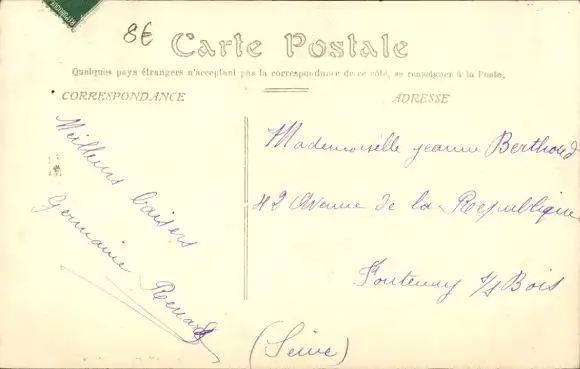 8€
Carte Postale
Quelques pays étrangers n'acceptant pas la correspondance de ce côté, se renseigner à la Poste.
CORRESPONDANCE
ADRESSE
Meilleurs baisers
Germaine Renard
Mademoiselle Jeanne Berthoud
42 Avenue de la République
Fontenay s/s Bois
(Seine)